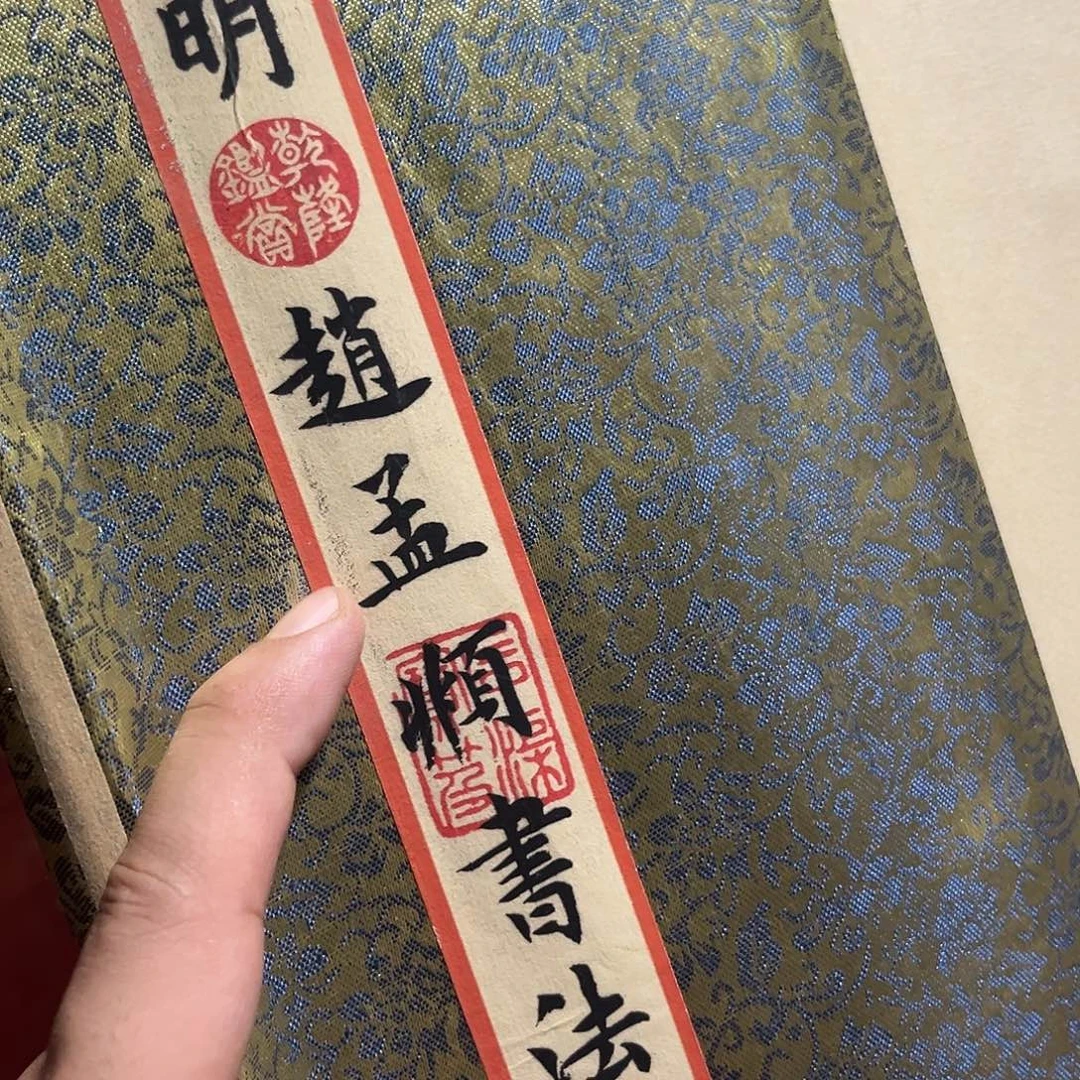 明
乾隆
鑑賞
趙孟頫書法